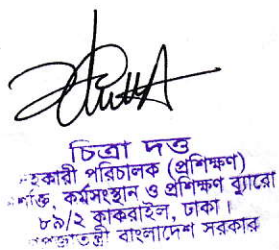 চিত্রা দত্ত
হকারী পরিচালক (প্রশিক্ষণ)
শক্তি, কর্মসংস্থান ও প্রশিক্ষণ ব্যুরো
৮৯/২ কাকরাইল, ঢাকা।
গণপ্রজাতন্ত্রী বাংলাদেশ সরকার